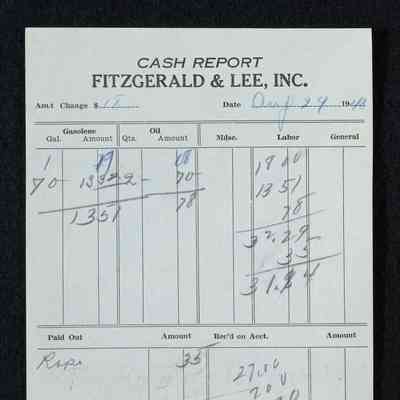 CASH REPORT
FITZGERALD & LEE, INC.
Am't Change $ Date Aug 29 194
Gasolene Oil
Gal. Amount Qts. Amount Mdse. Labor General
1 1800
70 1332 2 70 1351
1351 78 78
3229
35
31.94
Paid Out Amount Rec'd on Acct. Amount
Rope 35
27.00
200